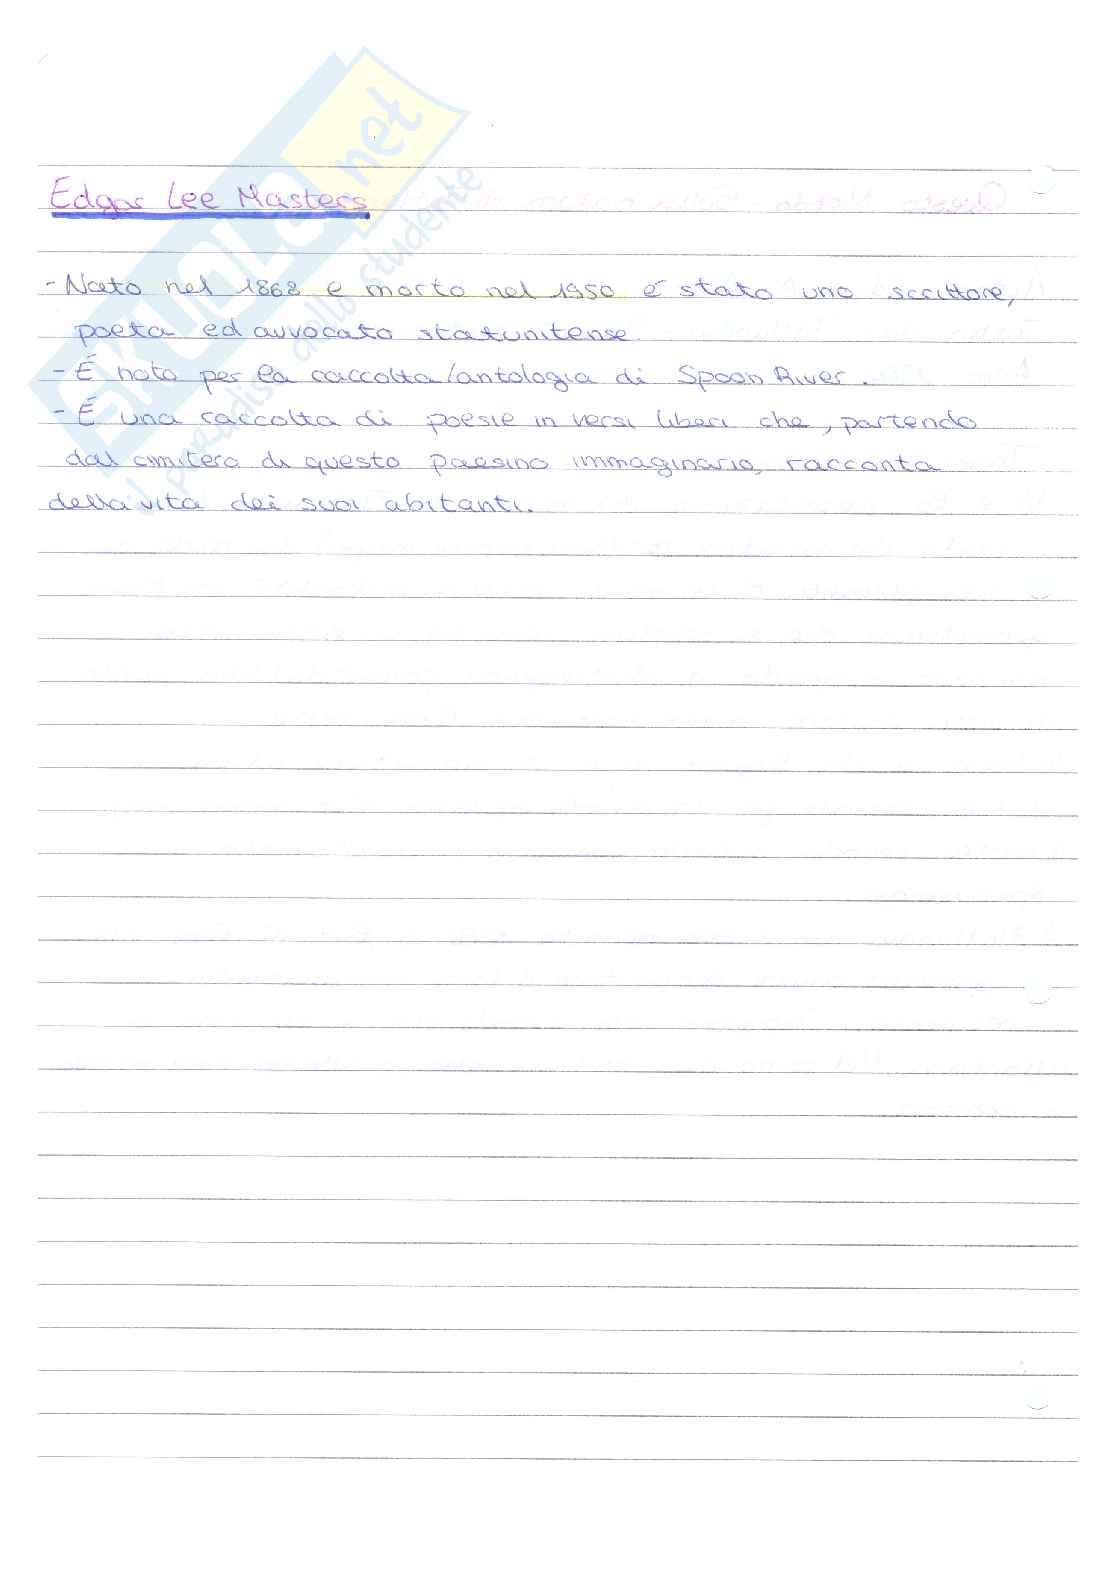 Edgar Lee Masters
- Nato nel 1868 e morto nel 1950 è stato uno scrittore,
poeta ed avvocato statunitense.
- É noto per la raccolta/antologia di Spoon River.
- É una raccolta di poesie in versi liberi che, partendo
dal cimitero di questo paesino immaginario, racconta
della vita dei suoi abitanti.
SKUOLA.net
il paradiso dello studente